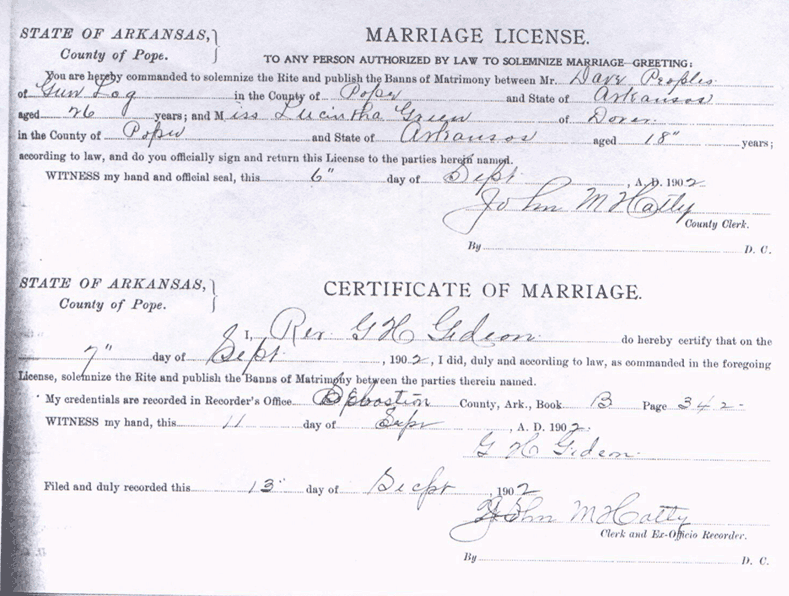 STATE OF ARKANSAS, } MARRIAGE LICENSE.
County of Pope.
TO ANY PERSON AUTHORIZED BY LAW TO SOLEMNIZE MARRIAGE—GREETING:
You are hereby commanded to solemnize the Rite and publish the Banns of Matrimony between Mr. Dave Peoples
of Gum Log in the County of Pope and State of Arkansas
aged 26 years; and Miss Lucintha Green of Dover
in the County of Pope and State of Arkansas aged 18" years;
according to law, and do you officially sign and return this License to the parties herein named.
WITNESS my hand and official seal, this 6" day of Sept , A. D. 1902
John M Hatly
County Clerk.
By D. C.
STATE OF ARKANSAS, } CERTIFICATE OF MARRIAGE.
County of Pope.
I, Rev. G H Gideon do hereby certify that on the
7" day of Sept , 1902, I did, duly and according to law, as commanded in the foregoing
License, solemnize the Rite and publish the Banns of Matrimony between the parties therein named.
My credentials are recorded in Recorder's Office Sebastion County, Ark., Book B Page 342
WITNESS my hand, this 11 day of Sept , A. D. 1902
G H Gideon
Filed and duly recorded this 13" day of Sept , 1902
John M Hatly
Clerk and Ex-Officio Recorder.
By D. C.